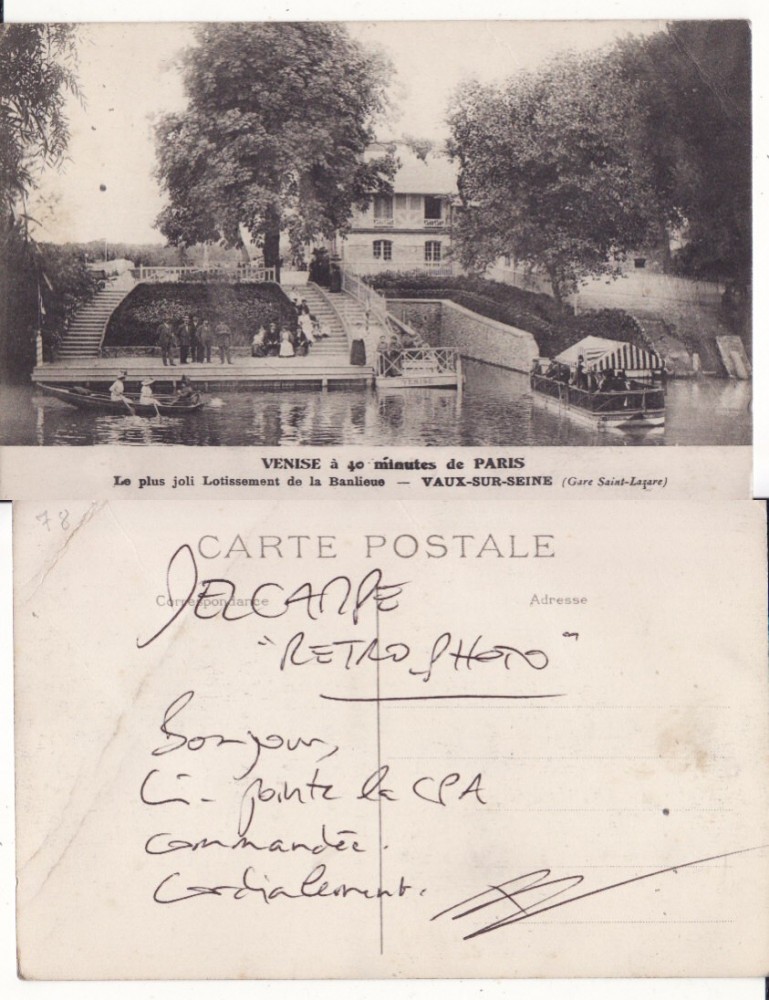 VENISE
VENISE à 40 minutes de PARIS
Le plus joli Lotissement de la Banlieue — VAUX-SUR-SEINE (Gare Saint-Lazare)
78
CARTE POSTALE
Correspondance
Adresse
DELCAMPE
"RETRO PHOTO"
Bonjour,
Ci-jointe la CPA
commandée.
Cordialement.